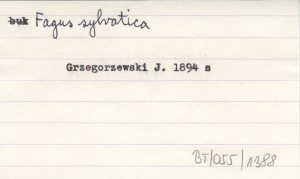 buk Fagus sylvatica
Grzegorzewski J. 1894 s
BT/055/1388